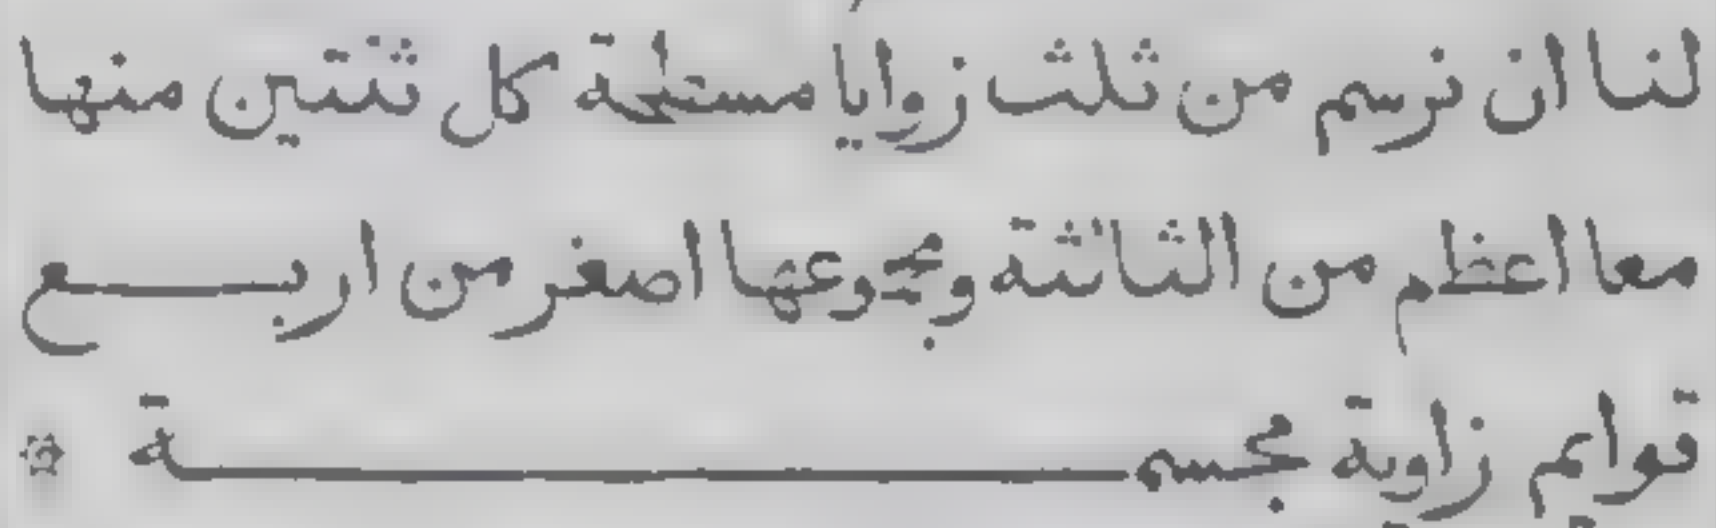 لنا ان نرسم من ثلث زوايا مسطحة كل ثنتين منها
معا اعظم من الثالثة ومجموعها اصغر من اربع
قوايم زاوية مجسمة